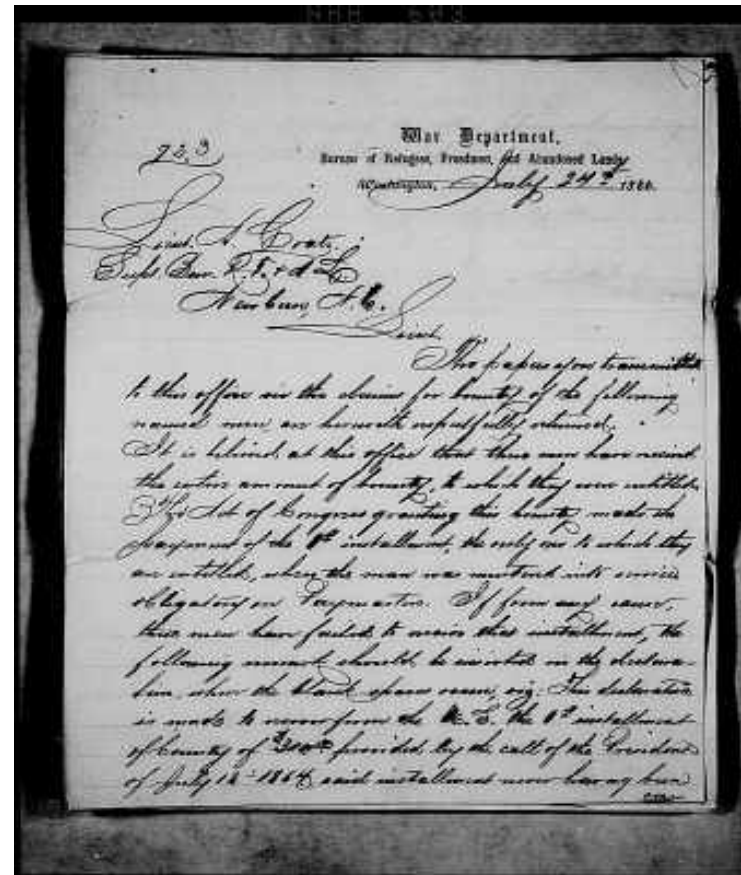 War Department,
723
Bureau of Refugees, Freedmen, and Abandoned Lands
Washington, July 24th 1866.
Lieut. A. Coats.
Supt Bur. R. F. & A L
Newbern, N. C.
Lieut.
The papers you transmitted
to this office in the claims for bounty of the following
named men are herewith respectfully returned.
It is believed at this office that these men have received
the entire amount of bounty, to which they were entitled.
The Act of Congress granting this bounty made the
payment of the 1st installment, the only one to which they
are entitled, when the man was mustered into service
obligatory on Paymasters. If from any cause,
these men have failed to receive this installment, the
following remark should be inserted in the declara-
tion, where the blank space occurs, viz: This declaration
is made to recover from the U. S. the 1st installment
of bounty of $300 provided by the call of the President
of July 18th 1864, said installment never having been